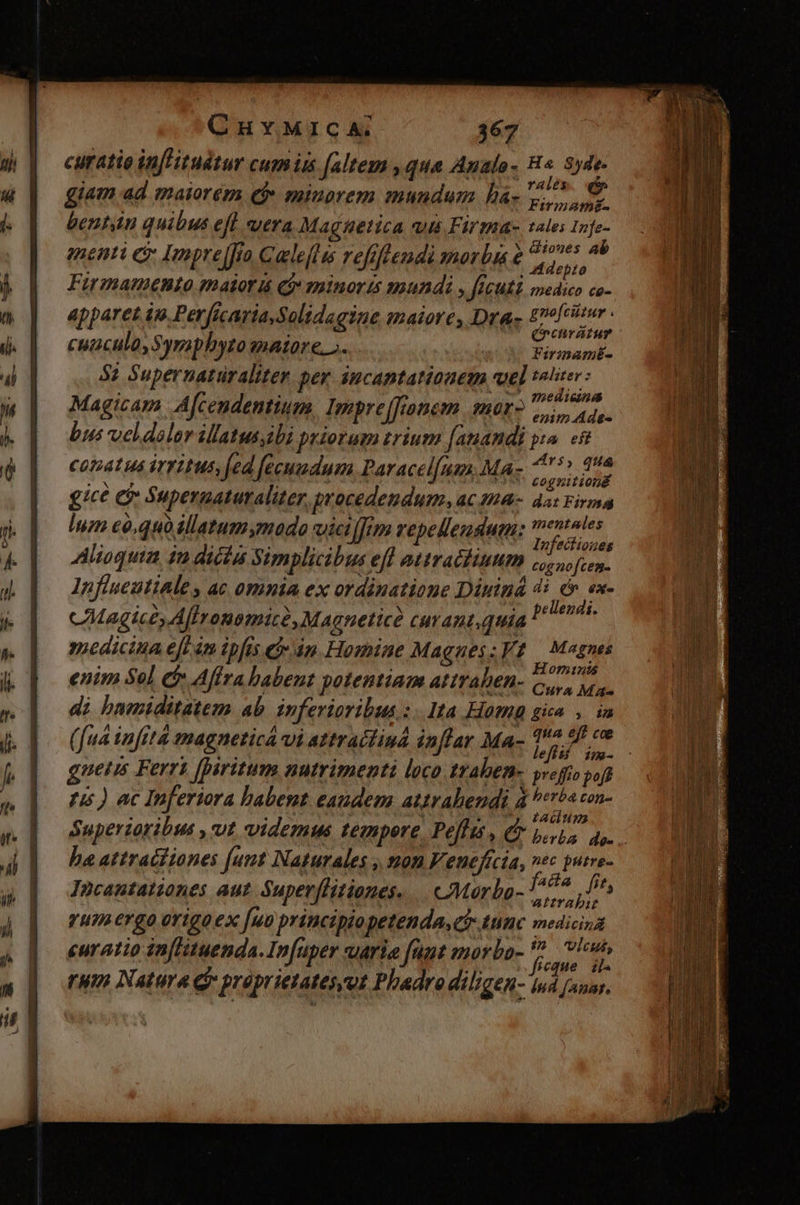 CHYMICA. 367
curatio inſtituātur cum iis ſaltem, quæ Analo-
giam ad maiorem & minorem mundum ha-
bent, in quibus eſt vera Magnetica vis Firma-
menti & Impreſſio Cæleſtis reſiſtendi morbis è
Firmamento maioris & minoris mundi, ſicuti
apparet in Perſicaria, Solidagine maiore, Dra-
cunculo, Symphyto maiore.
Si Supernaturaliter per incantationem vel
Magicam Aſcendentium Impreſſionem mor-
bus vel dolor illatus, ibi priorum trium ſanandi
conatus irritus, ſed ſecundum Paracelſum Ma-
gicè & Supernaturaliter procedendum, ac ma-
lum eò, quò illatum, modo viciſſim repellendum:
Alioquin in dictis Simplicibus eſt attractiuum
Influentiale, ac omnia ex ordinatione Diuinâ
Magicè, Aſtronomicè, Magneticè curant, quia
medicina eſt in ipſis & in Homine Magnes: Vt
enim Sol & Aſtra habent potentiam attrahen-
di humiditatem ab inferioribus: Ita Homo
(ſuâ inſitâ magneticâ vi attractiuâ inſtar Ma-
gnetis Ferri ſpiritum nutrimenti loco trahen-
tis) ac Inferiora habent eandem attrahendi à
Superioribus, vt videmus tempore Peſtis, &
hæ attractiones ſunt Naturales, non Veneficia,
Incantationes aut Superſtitiones. Morbo-
rum ergo origo ex ſuo principio petenda, & tunc
curatio inſtituenda. Inſuper varia ſunt morbo-
rum Natura & proprietates, vt Phædro diligen-
Hæ Syde-
rales &
Firmamē-
tales Infe-
ctiones ab
Adepto
medico co-
gnoſcūtur
& curātur
Firmamē-
taliter:
medicina
enim Ade-
pta eſt
Ars, quæ
cognitionē
dat Firma
mentales
Infectiones
cognoſcen-
di & ex-
pellendi.
Magnes
Hominis
Cura Ma-
gica, in
qua eſt cœ
leſtis im-
preſſio poſt
herbæ con-
tactum
herba de-
nec putre-
facta ſit,
attrahit
medicinā
in vlcus,
ſicque il-
lud ſanat.